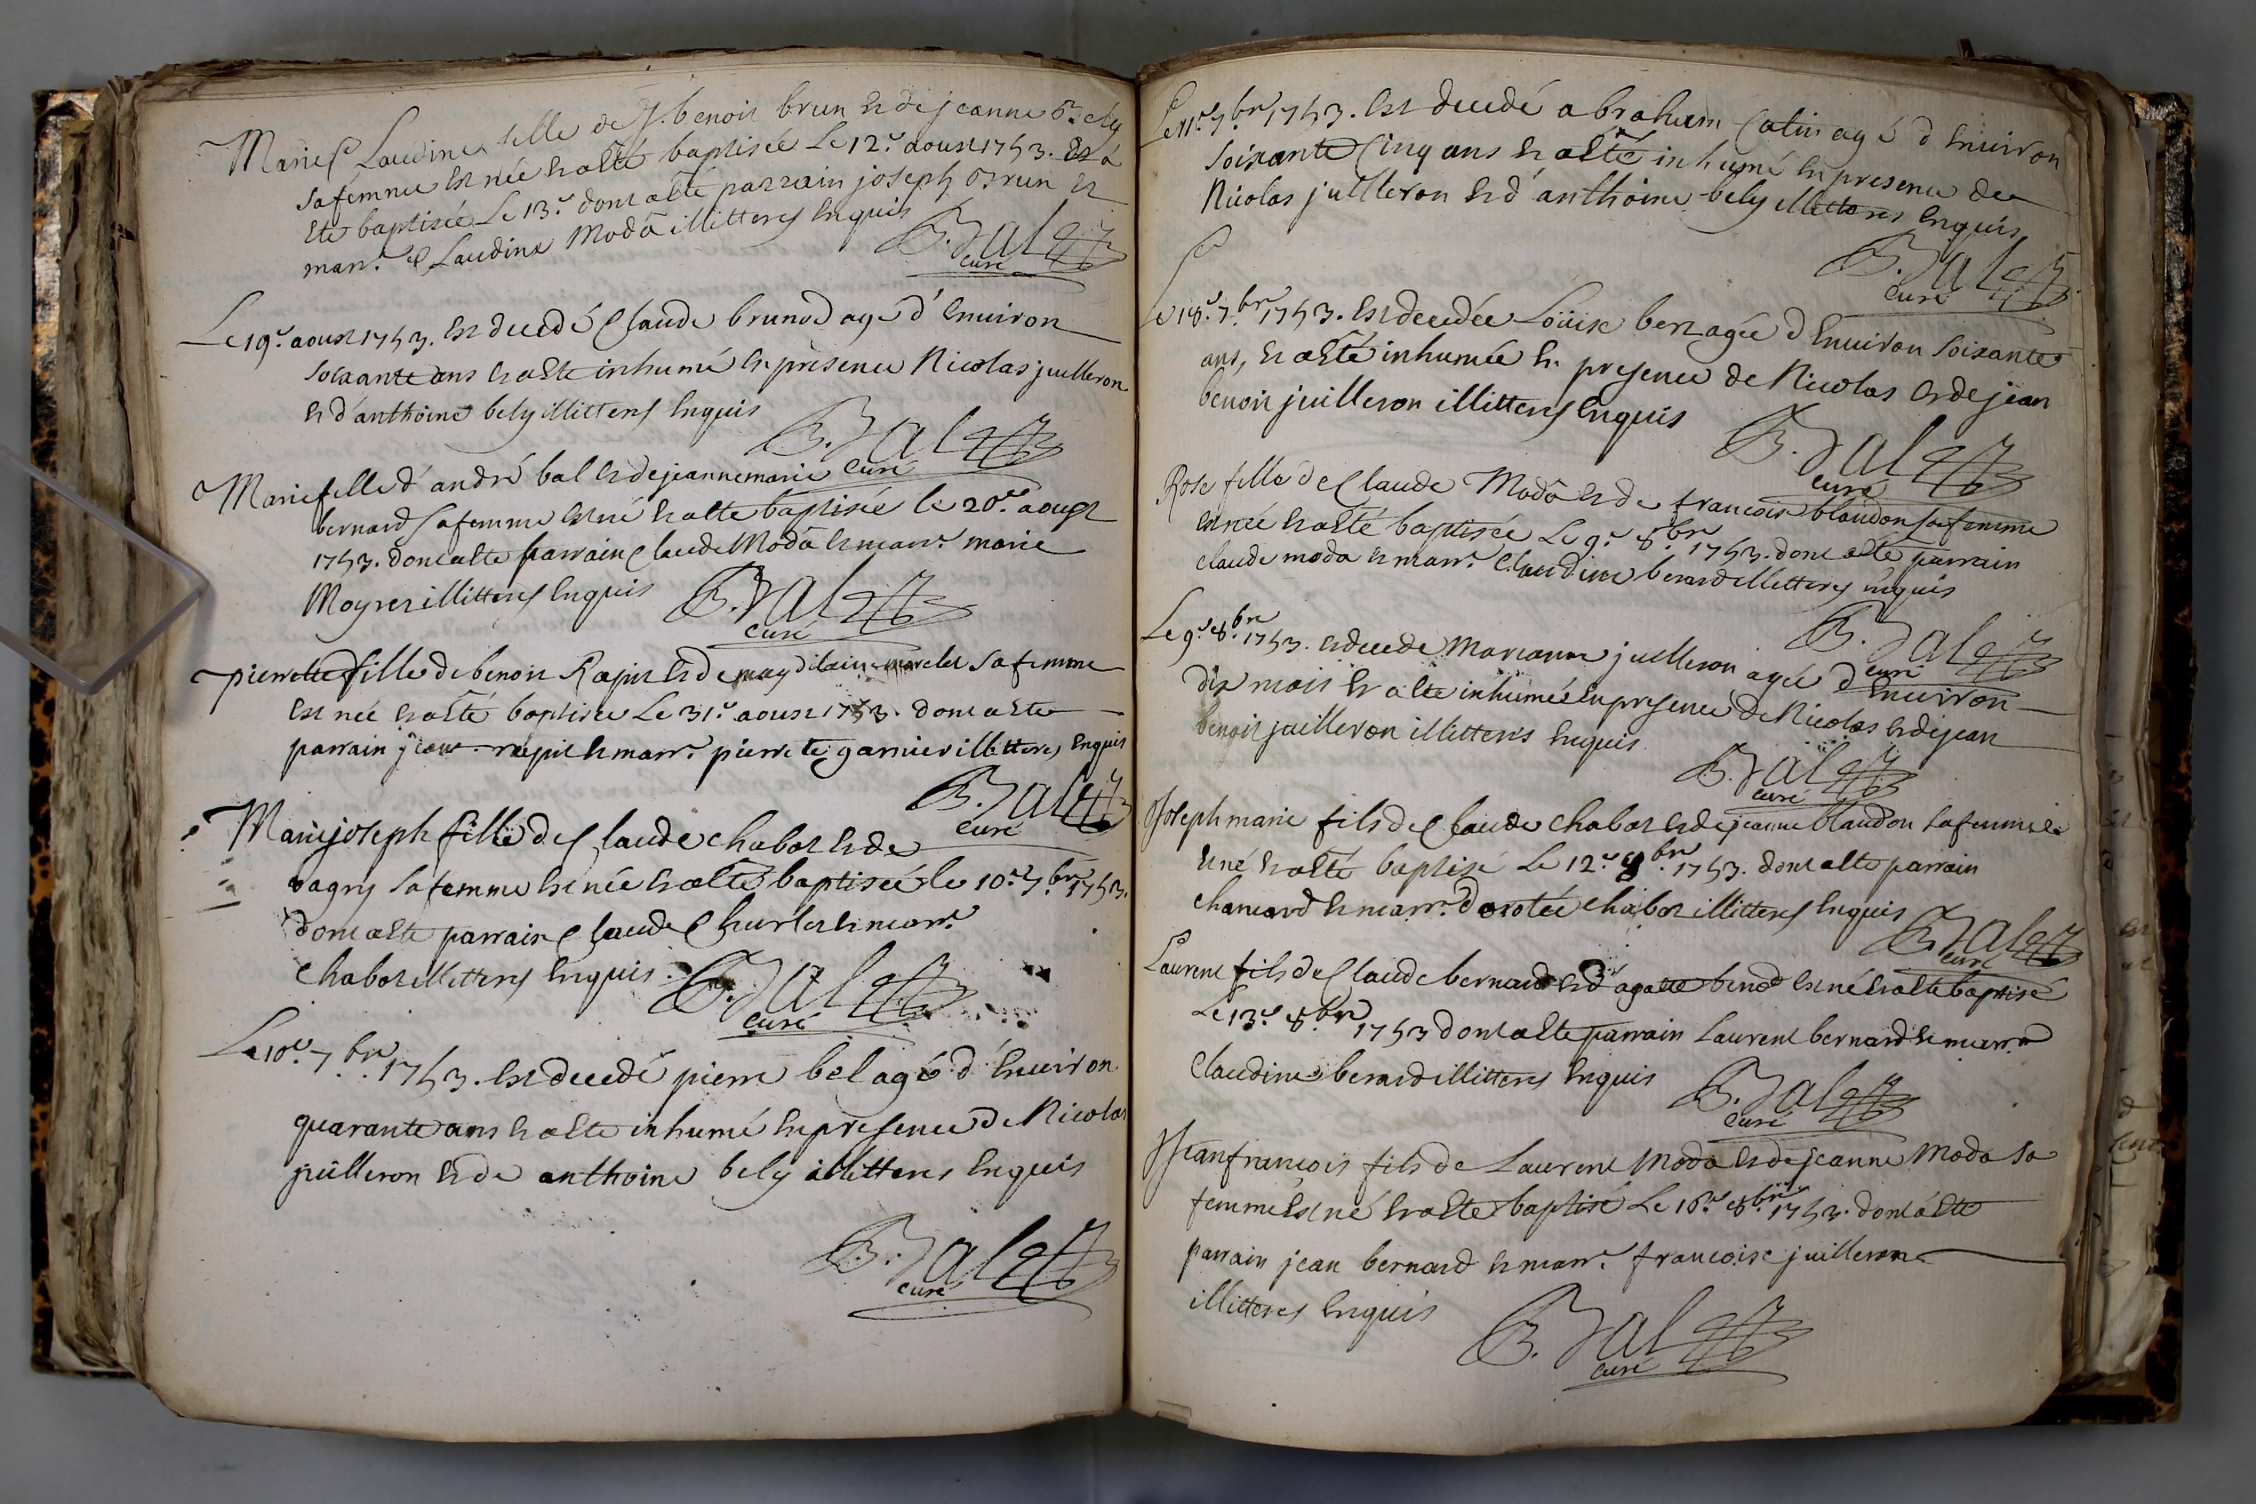 Marie Claudine fille de J. benoit brun et de jeanne bely
sa femme est née et a esté baptisée Le 12.e aoust 1753. et a
eté baptisée Le 13.e dont a eté parrain joseph brun et
marr.e Claudine Moda illitterés Enquis
B. Balet
curé
Le 19.e aoust 1753. est decedé Claude brunod agé d'Environ
soixante ans et a este inhumé En presence Nicolas juilleron
et d'anthoine bely illitterés Enquis
B. Balet
curé
Marie fille d'andré bal et de jeanne marie
bernard sa femme est né et a esté baptisée le 20.e aoust
1753. dont a este parrain Claude Moda et marr.e marie
Moyret illitterés Enquis
B. Balet
curé
pierrette fille de benoit Rapit et de magdelaine marelet sa femme
est née et a esté baptisée Le 31.e aoust 1753. dont a este
parrain rapit et marr.e pierrete garnier illitterés Enquis
B. Balet
curé
Marie joseph fille de Claude chabot et de
vagny sa femme est née et a esté baptisée le 10.e 7.br 1753.
dont a este parrain Claude Churlet et marr.e
Chabot illitterés Enquis.
B. Balet
curé
Le 10.e 7.br 1753. est decedé pierre bel agé d'Environ
quarante ans et a este inhumé En presence de Nicolas
juilleron et de anthoine bely illitterés Enquis
B. Balet
curé
Le 11.e 7.br 1753. est decedé abraham Catin agé d'Environ
soixante Cinq ans et a esté inhumé En presence de
Nicolas juilleron et d'anthoine bely illitterés Enquis
B. Balet
curé
Le 18.e 7.br 1753. est decedée Loüise bert agée d'Environ soixante
ans, et a esté inhumée En presence de Nicolas et de jean
benoit juilleron illitterés Enquis
B. Balet
curé
Rose fille de Claude Moda et de francoise blandon sa femme
est née et a esté baptisée Le 9.e 8.br 1753. dont a este parrain
claude moda et marr.e Claudine berard illitterés enquis
B. Balet
curé
Le 9.e 8.br 1753. est decede Marianne juilleron agée d'Environ
dix mois et a este inhumée En presence de Nicolas et de jean
benoit juilleron illitterés Enquis
B. Balet
curé
Joseph marie fils de Claude chabot et de jeanne blandon sa femme
est né et a esté baptisé Le 12.e 8.br 1753. dont a este parrain
chanard et marr.e dorotée chabot illitterés Enquis
B. Balet
curé
Laurent fils de Claude bernard et d'agatte benod est né et a este baptisé
Le 13.e 8.br 1753 dont a este parrain Laurent bernard et marr.e
Claudine berard illitterés Enquis
B. Balet
curé
Jean francois fils de Laurent Moda et de jeanne Moda sa
femme est né et a este baptisé Le 16.e 8.br 1753. dont a este
parrain jean bernard et marr.e francoise juilleron
illitterés Enquis
B. Balet
curé